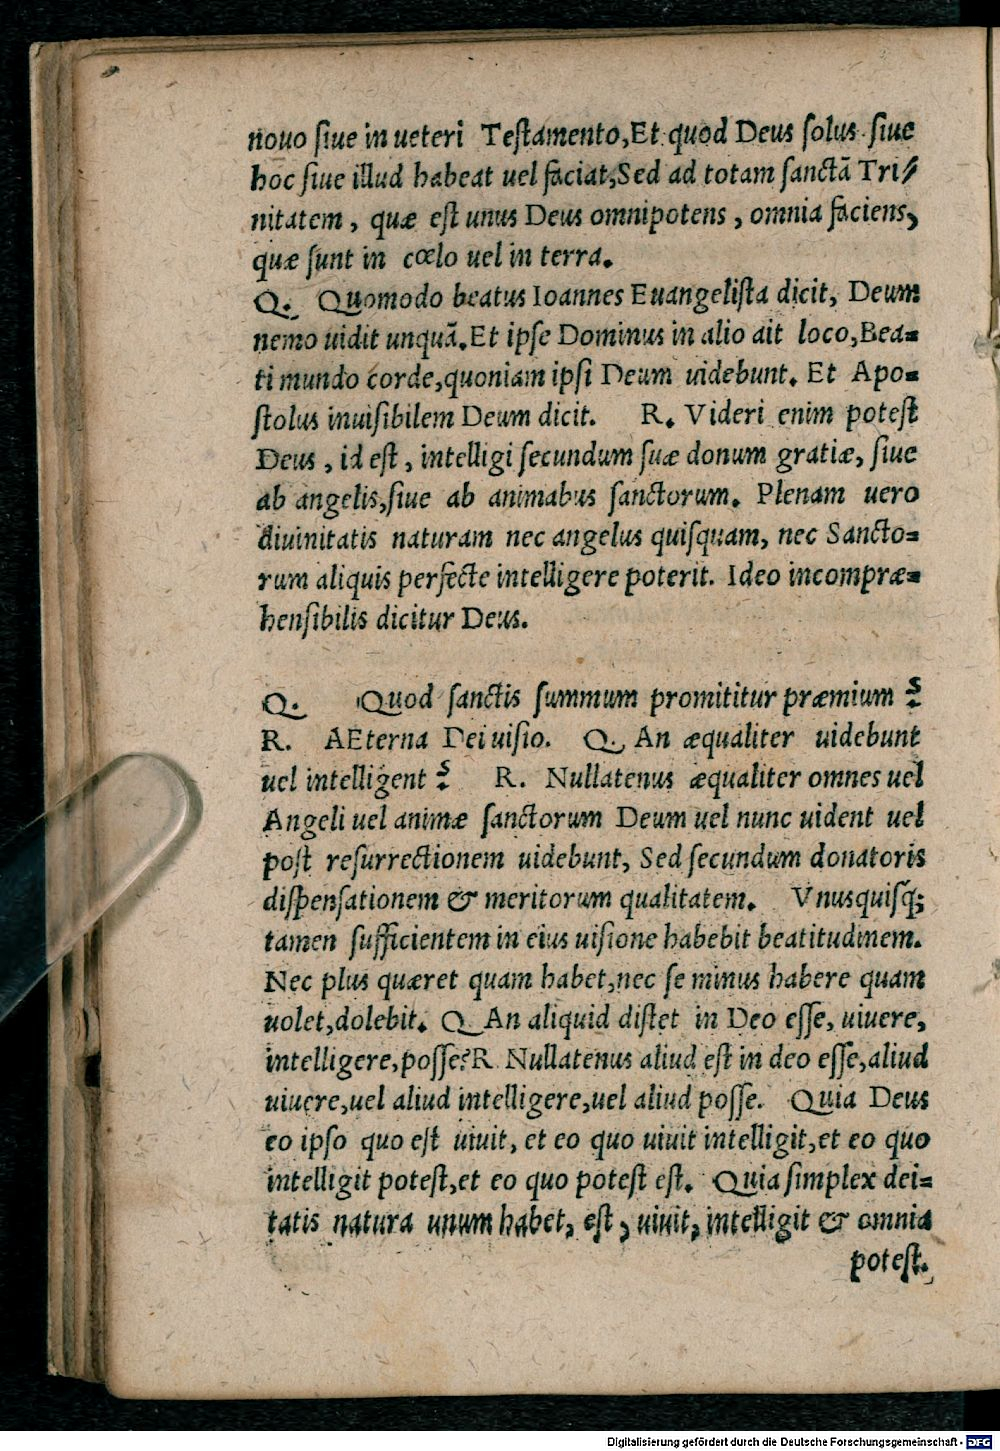 nouo ſiue in ueteri Teſtamento, Et quod Deus ſolus ſiue
hoc ſiue illud habeat uel faciat, Sed ad totam ſanctã Tri⸗
nitatem, quæ eſt unus Deus omnipotens, omnia faciens,
quæ ſunt in cœlo uel in terra.
Q. Quomodo beatus Ioannes Euangeliſta dicit, Deum
nemo uidit unquã. Et ipſe Dominus in alio ait loco, Bea⸗
ti mundo corde, quoniam ipſi Deum uidebunt. Et Apo⸗
ſtolus inuiſibilem Deum dicit. R. Videri enim poteſt
Deus, id eſt, intelligi ſecundum ſuæ donum gratiæ, ſiue
ab angelis, ſiue ab animabus ſanctorum. Plenam uero
diuinitatis naturam nec angelus quiſquam, nec Sancto⸗
rum aliquis perfecte intelligere poterit. Ideo incompræ⸗
henſibilis dicitur Deus.
Q. Quod ſanctis ſummum promititur præmium?
R. AEterna Dei uiſio. Q. An æqualiter uidebunt
uel intelligent? R. Nullatenus æqualiter omnes uel
Angeli uel animæ ſanctorum Deum uel nunc uident uel
poſt reſurrectionem uidebunt, Sed ſecundum donatoris
diſpenſationem & meritorum qualitatem. Vnusquiſq̃;
tamen ſufficientem in eius uiſione habebit beatitudinem.
Nec plus quæret quam habet, nec ſe minus habere quam
uolet, dolebit. Q An aliquid diſtet in Deo eſſe, uiuere,
intelligere, poſſe? R. Nullatenus aliud eſt in deo eſſe, aliud
uiuere, uel aliud intelligere, uel aliud poſſe. Quia Deus
eo ipſo quo eſt uiuit, et eo quo uiuit intelligit, et eo quo
intelligit poteſt, et eo quo poteſt eſt. Quia ſimplex dei⸗
tatis natura unum habet, eſt, uiuit, intelligit & omnia
poteſt.
Digitalisierung gefördert durch die Deutsche Forschungsgemeinschaft - DFG